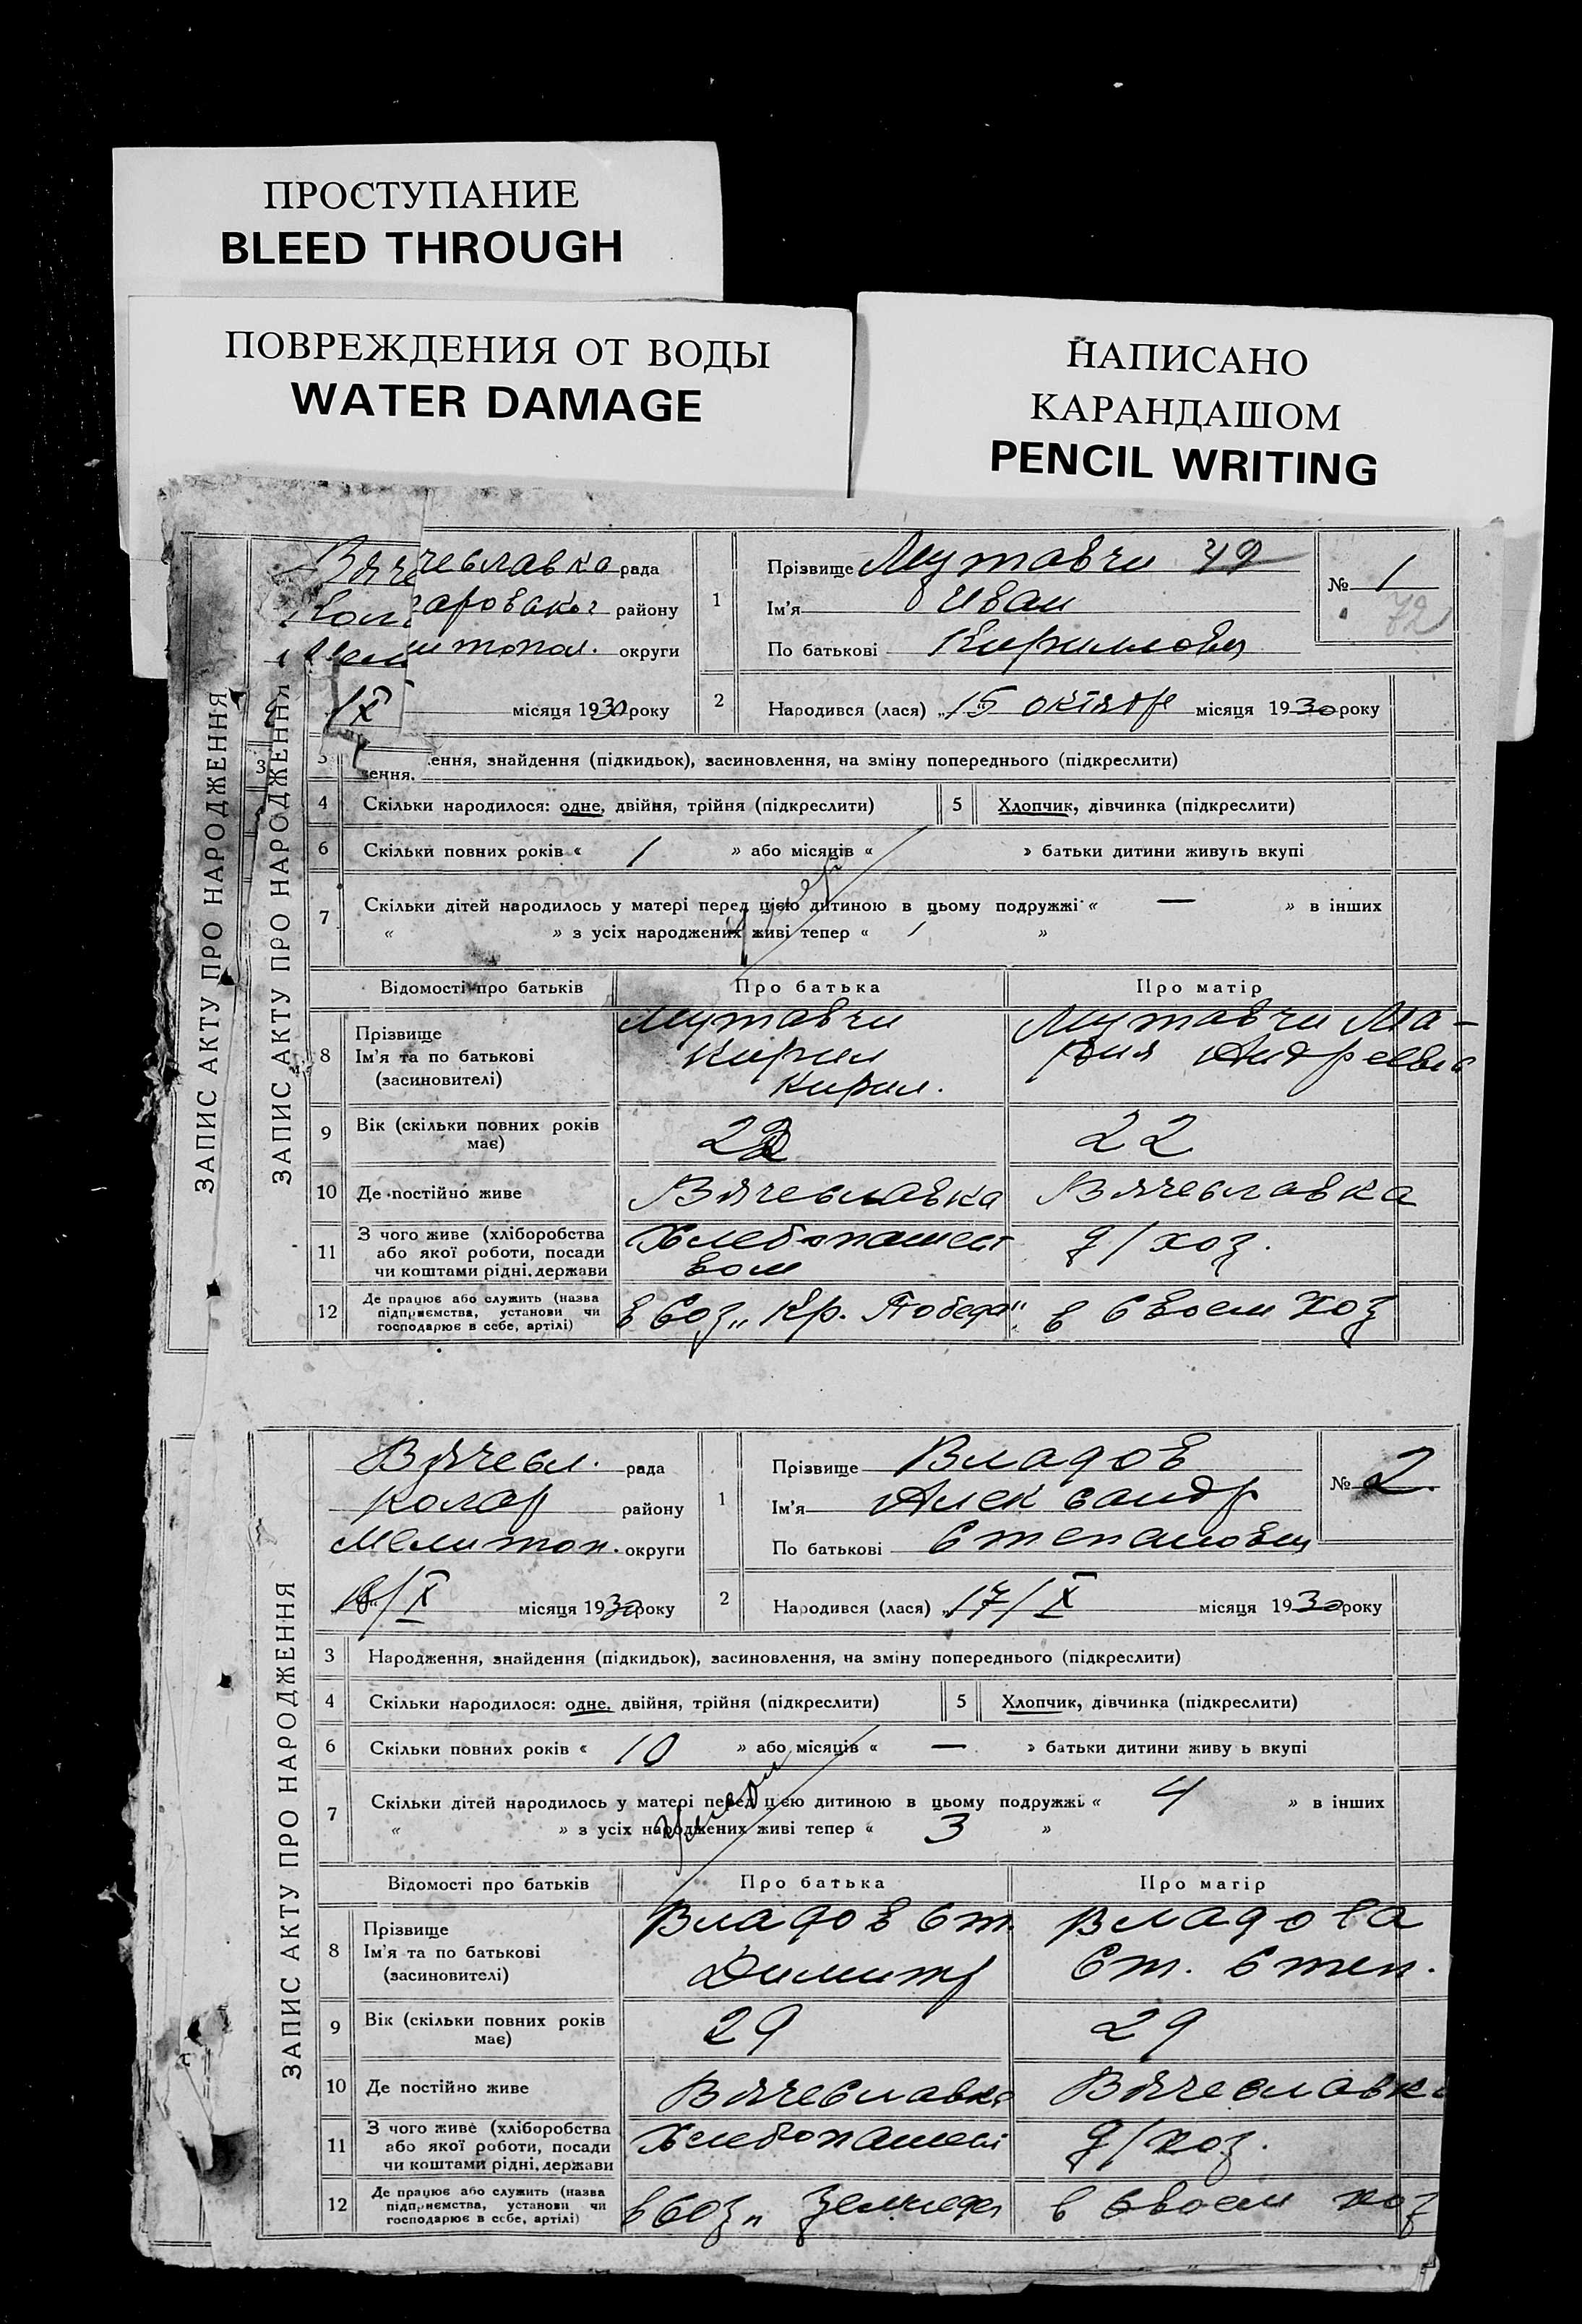 ПРОСТУПАНИЕ
BLEED THROUGH
ПОВРЕЖДЕНИЯ ОТ ВОДЫ
WATER DAMAGE
НАПИСАНО
КАРАНДАШОМ
PENCIL WRITING
ЗАПИС АКТУ ПРО НАРОДЖЕННЯ
3
ЗАПИС АКТУ ПРО НАРОДЖЕННЯ
Вячеславка рада
району
округи
/X місяця 1930 року
1 Прізвище Мутавчи 49
Ім'я Иван
По батькові Кириллович
№ 1
72
2 Народився (лася) „15 октябр місяця 1930 року
3 ення, знайдення (підкидьок), засиновлення, на зміну попереднього (підкреслити)
ення.
4 Скільки народилося: одне, двійня, трійня (підкреслити) 5 Хлопчик, дівчинка (підкреслити)
6 Скільки повних років « 1 » або місяців « » батьки дитини живуть вкупі
7 Скільки дітей народилось у матері перед цією дитиною в цьому подружжі « — » в інших
« » з усіх народжених живі тепер « 1 »
Відомості про батьків Про батька Про матір
8 Прізвище
Ім'я та по батькові
(засиновителі)
Мутавчи
Кирил
Кирил.
Мутавчи Ма-
рия Андреевна
9 Вік (скільки повних років
має)
22
22
10 Де постійно живе Вячеславка Вячеславка
11 З чого живе (хліборобства
або якої роботи, посади
чи коштами рідні, держави
Хлебопашест
вом
д/хоз.
12 Де працює або служить (назва
підприємства, установи чи
господарює в себе, артілі)
в Соз „Кр. Победа" в своем хоз
ЗАПИС АКТУ ПРО НАРОДЖЕННЯ
Вячесл. рада
Колар району
Мелитоп. округи
18/X місяця 1930 року
1 Прізвище Владов
Ім'я Александр
По батькові Степанович
№ 2
2 Народився (лася) „17/X місяця 1930 року
3 Народження, знайдення (підкидьок), засиновлення, на зміну попереднього (підкреслити)
4 Скільки народилося: одне, двійня, трійня (підкреслити) 5 Хлопчик, дівчинка (підкреслити)
6 Скільки повних років « 10 » або місяців « — » батьки дитини живу ь вкупі
7 Скільки дітей народилось у матері перед цією дитиною в цьому подружжі « 4 » в інших
« » з усіх народжених живі тепер « 3 »
Відомості про батьків Про батька Про матір
8 Прізвище
Ім'я та по батькові
(засиновителі)
Владов Ст.
Димитр
Владова
Ст. Степ.
9 Вік (скільки повних років
має)
29
29
10 Де постійно живе Вячеславка Вячеславка
11 З чого живе (хліборобства
або якої роботи, посади
чи коштами рідні, держави
Хлебопашест
д/хоз.
12 Де працює або служить (назва
підприємства, установи чи
господарює в себе, артілі)
в Соз „ Земледел в своем хоз